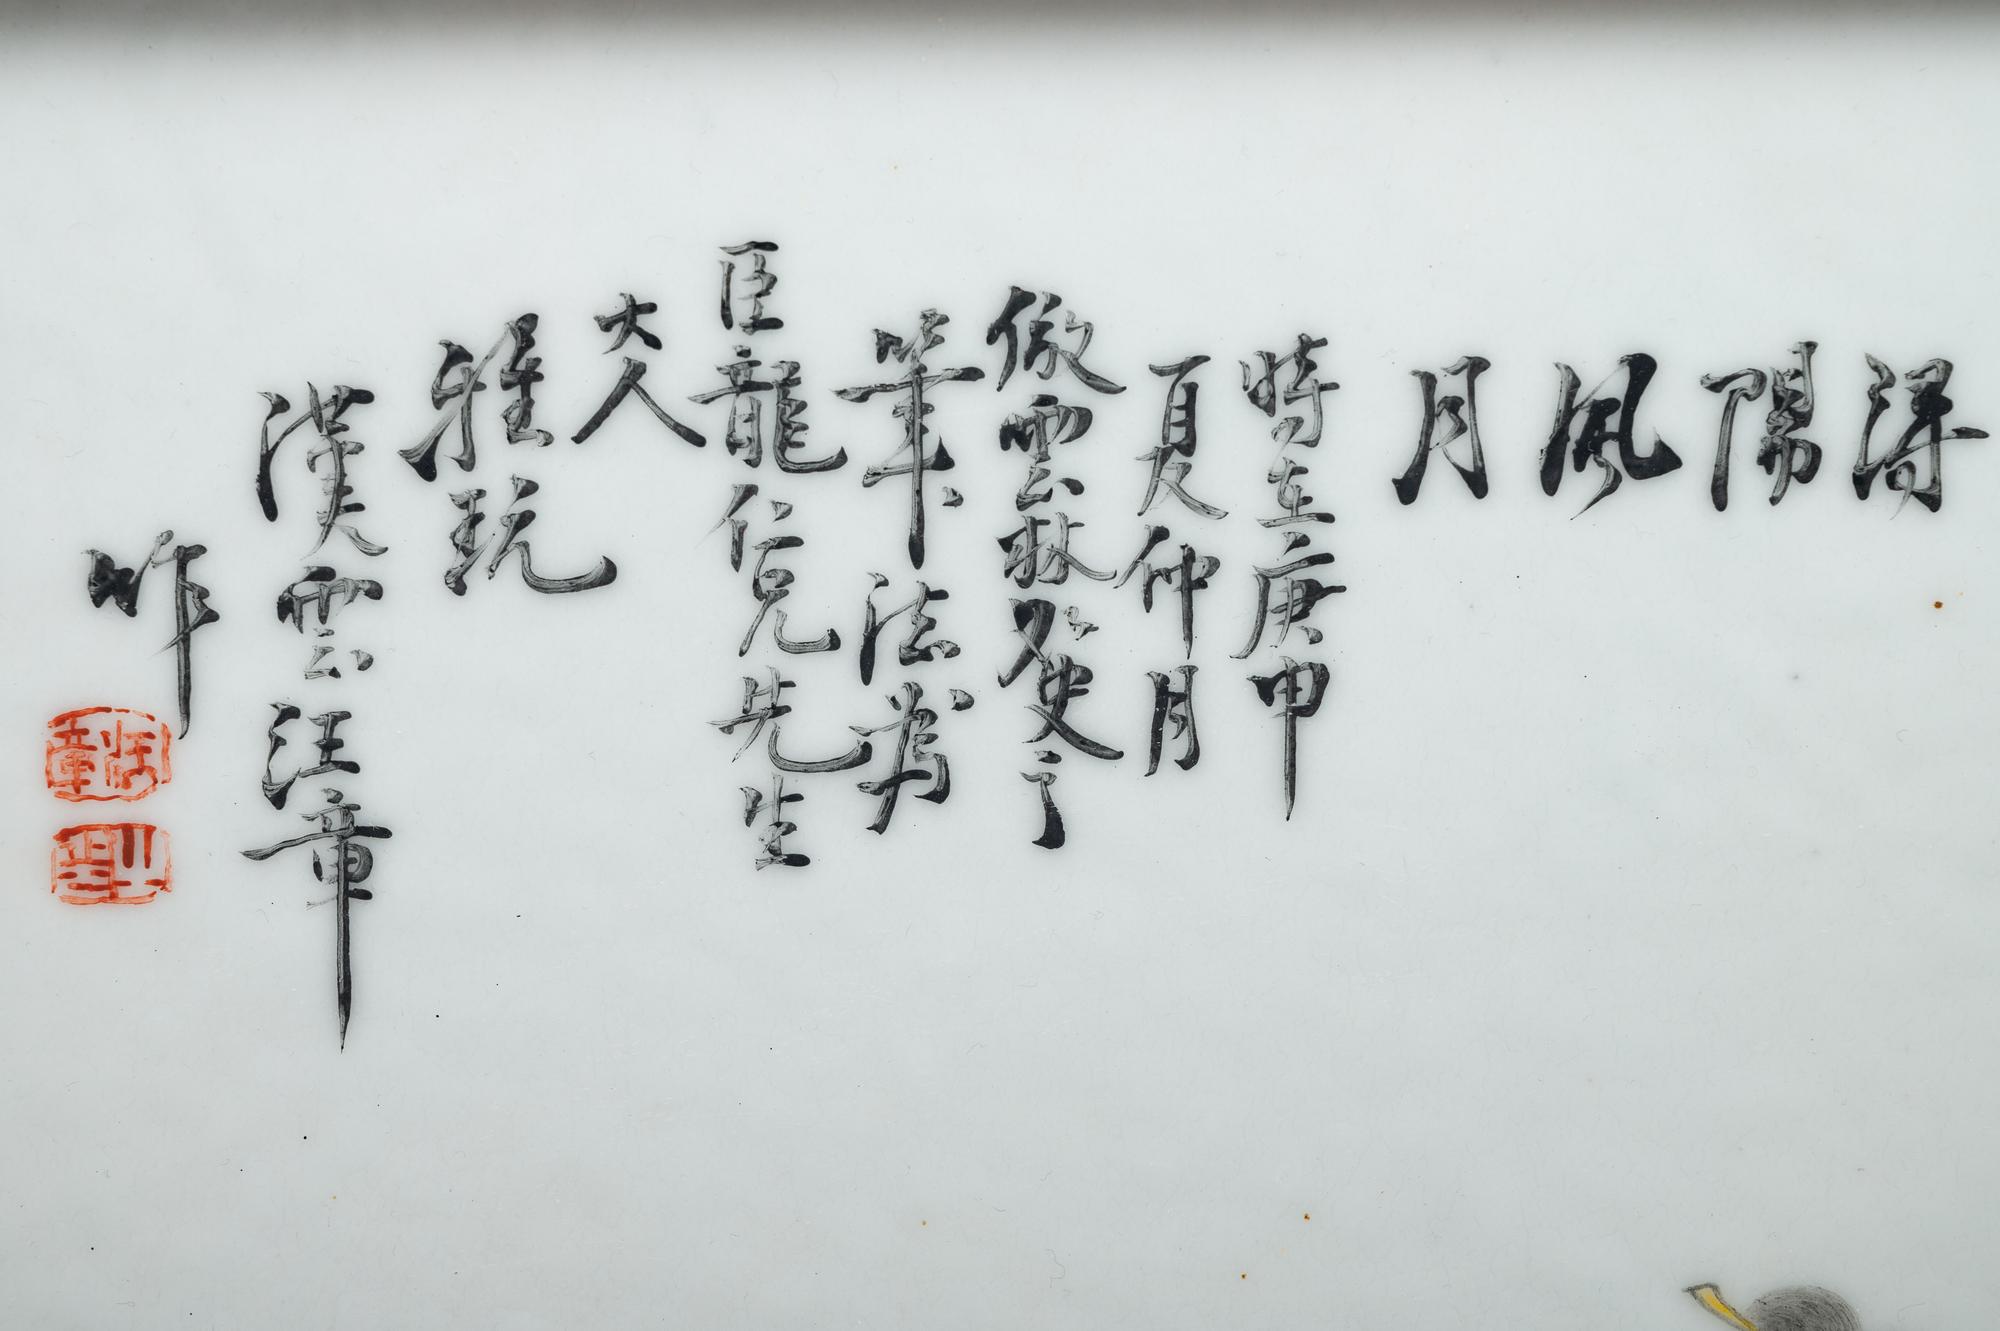 潯陽風月
時在庚申
夏仲月
倣雲林癸史之
筆法為
臣龍仁兄先生
大人
雅玩
漢雲汪章
作